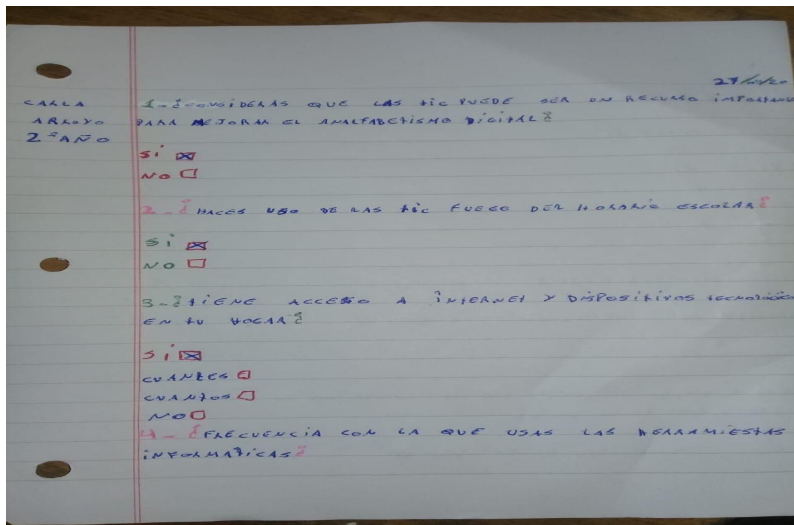 CARLA
ARROYO
2°AÑO
1-¿CONSIDERAS QUE LAS tic PUEDE SER UN RECURSO IMPORTANTE
PARA MEJORAR EL ANALFABETISMO DIGITAL?
Si
NO
2-¿HACES USO DE LAS tic FUEGO DEL HORARIO ESCOLAR?
Si
NO
3-¿tiENE ACCESO A INTERNET Y DISPOSITIVOS tECNOLÓGICO
EN tU HOGAR?
Si
CUANLES
CUANTOS
NO
4-¿FRECUENCIA CON LA QUE USAS LAS HERRAMIESTAS
INFORMATICAS?